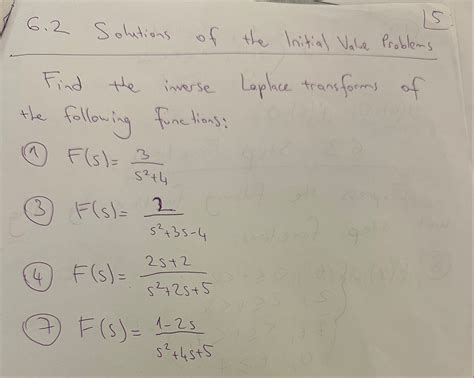 5
6.2 Solutions of the Initial Value Problems
Find the inverse Laplace transforms of
the following functions:
① F(s) = 3/(s²+4)
③ F(s) = 2/(s²+3s-4)
④ F(s) = (2s+2)/(s²+2s+5)
⑦ F(s) = (1-2s)/(s²+4s+5)